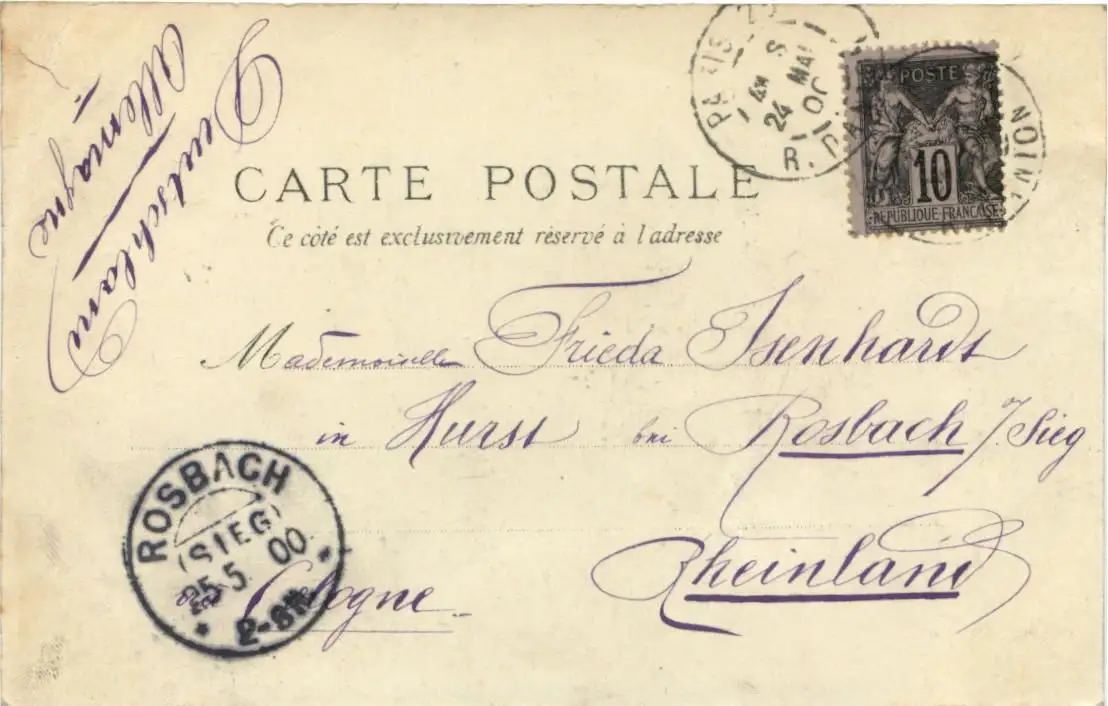 Deutschland
Allemagne
PARIS
S
24 MAI
00
R.
POSTE
10
REPUBLIQUE FRANCAISE
CARTE POSTALE
Ce côté est exclusivement réservé à l'adresse
Mademoiselle Frieda Isenhardt
in Hurst bei Rosbach /Sieg
Rheinland
Cologne
ROSBACH
(SIEG)
25.5.00